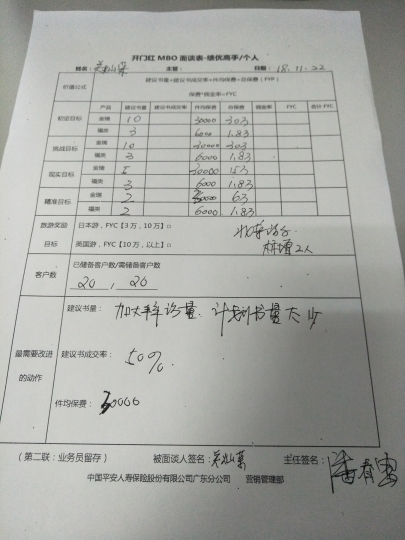 开门红 MBO 面谈表-绩优高手/个人
姓名： 主管： 日期：18.11.22
价值公式 建议书量*建议书成交率*件均保费=总保费（FYP）
保费*佣金率=FYC
产品 建议书量 建议书成交率 件均保费 总保费 佣金率 FYC 合计 FYC
初定目标 金瑞 10 30000 303
福类 3 6000 1.83
挑战目标 金瑞 10 30000 303
福类 3 6000 1.83
现实目标 金瑞 5 30000 153
福类 3 6000 1.83
精准目标 金瑞 2 30000 63
福类 2 6000 1.83
旅游奖励 日本游，FYC【3万，10万】□
目标 英国游，FYC【10万，以上】□
2人
客户数 已储备客户数/需储备客户数
20 , 20
最需要改进的动作
建议书量： 加大 量、计划书量太少
建议书成交率： 50%
件均保费： 30000
（第二联：业务员留存） 被面谈人签名： 主任签名：潘有
中国平安人寿保险股份有限公司广东分公司 营销管理部